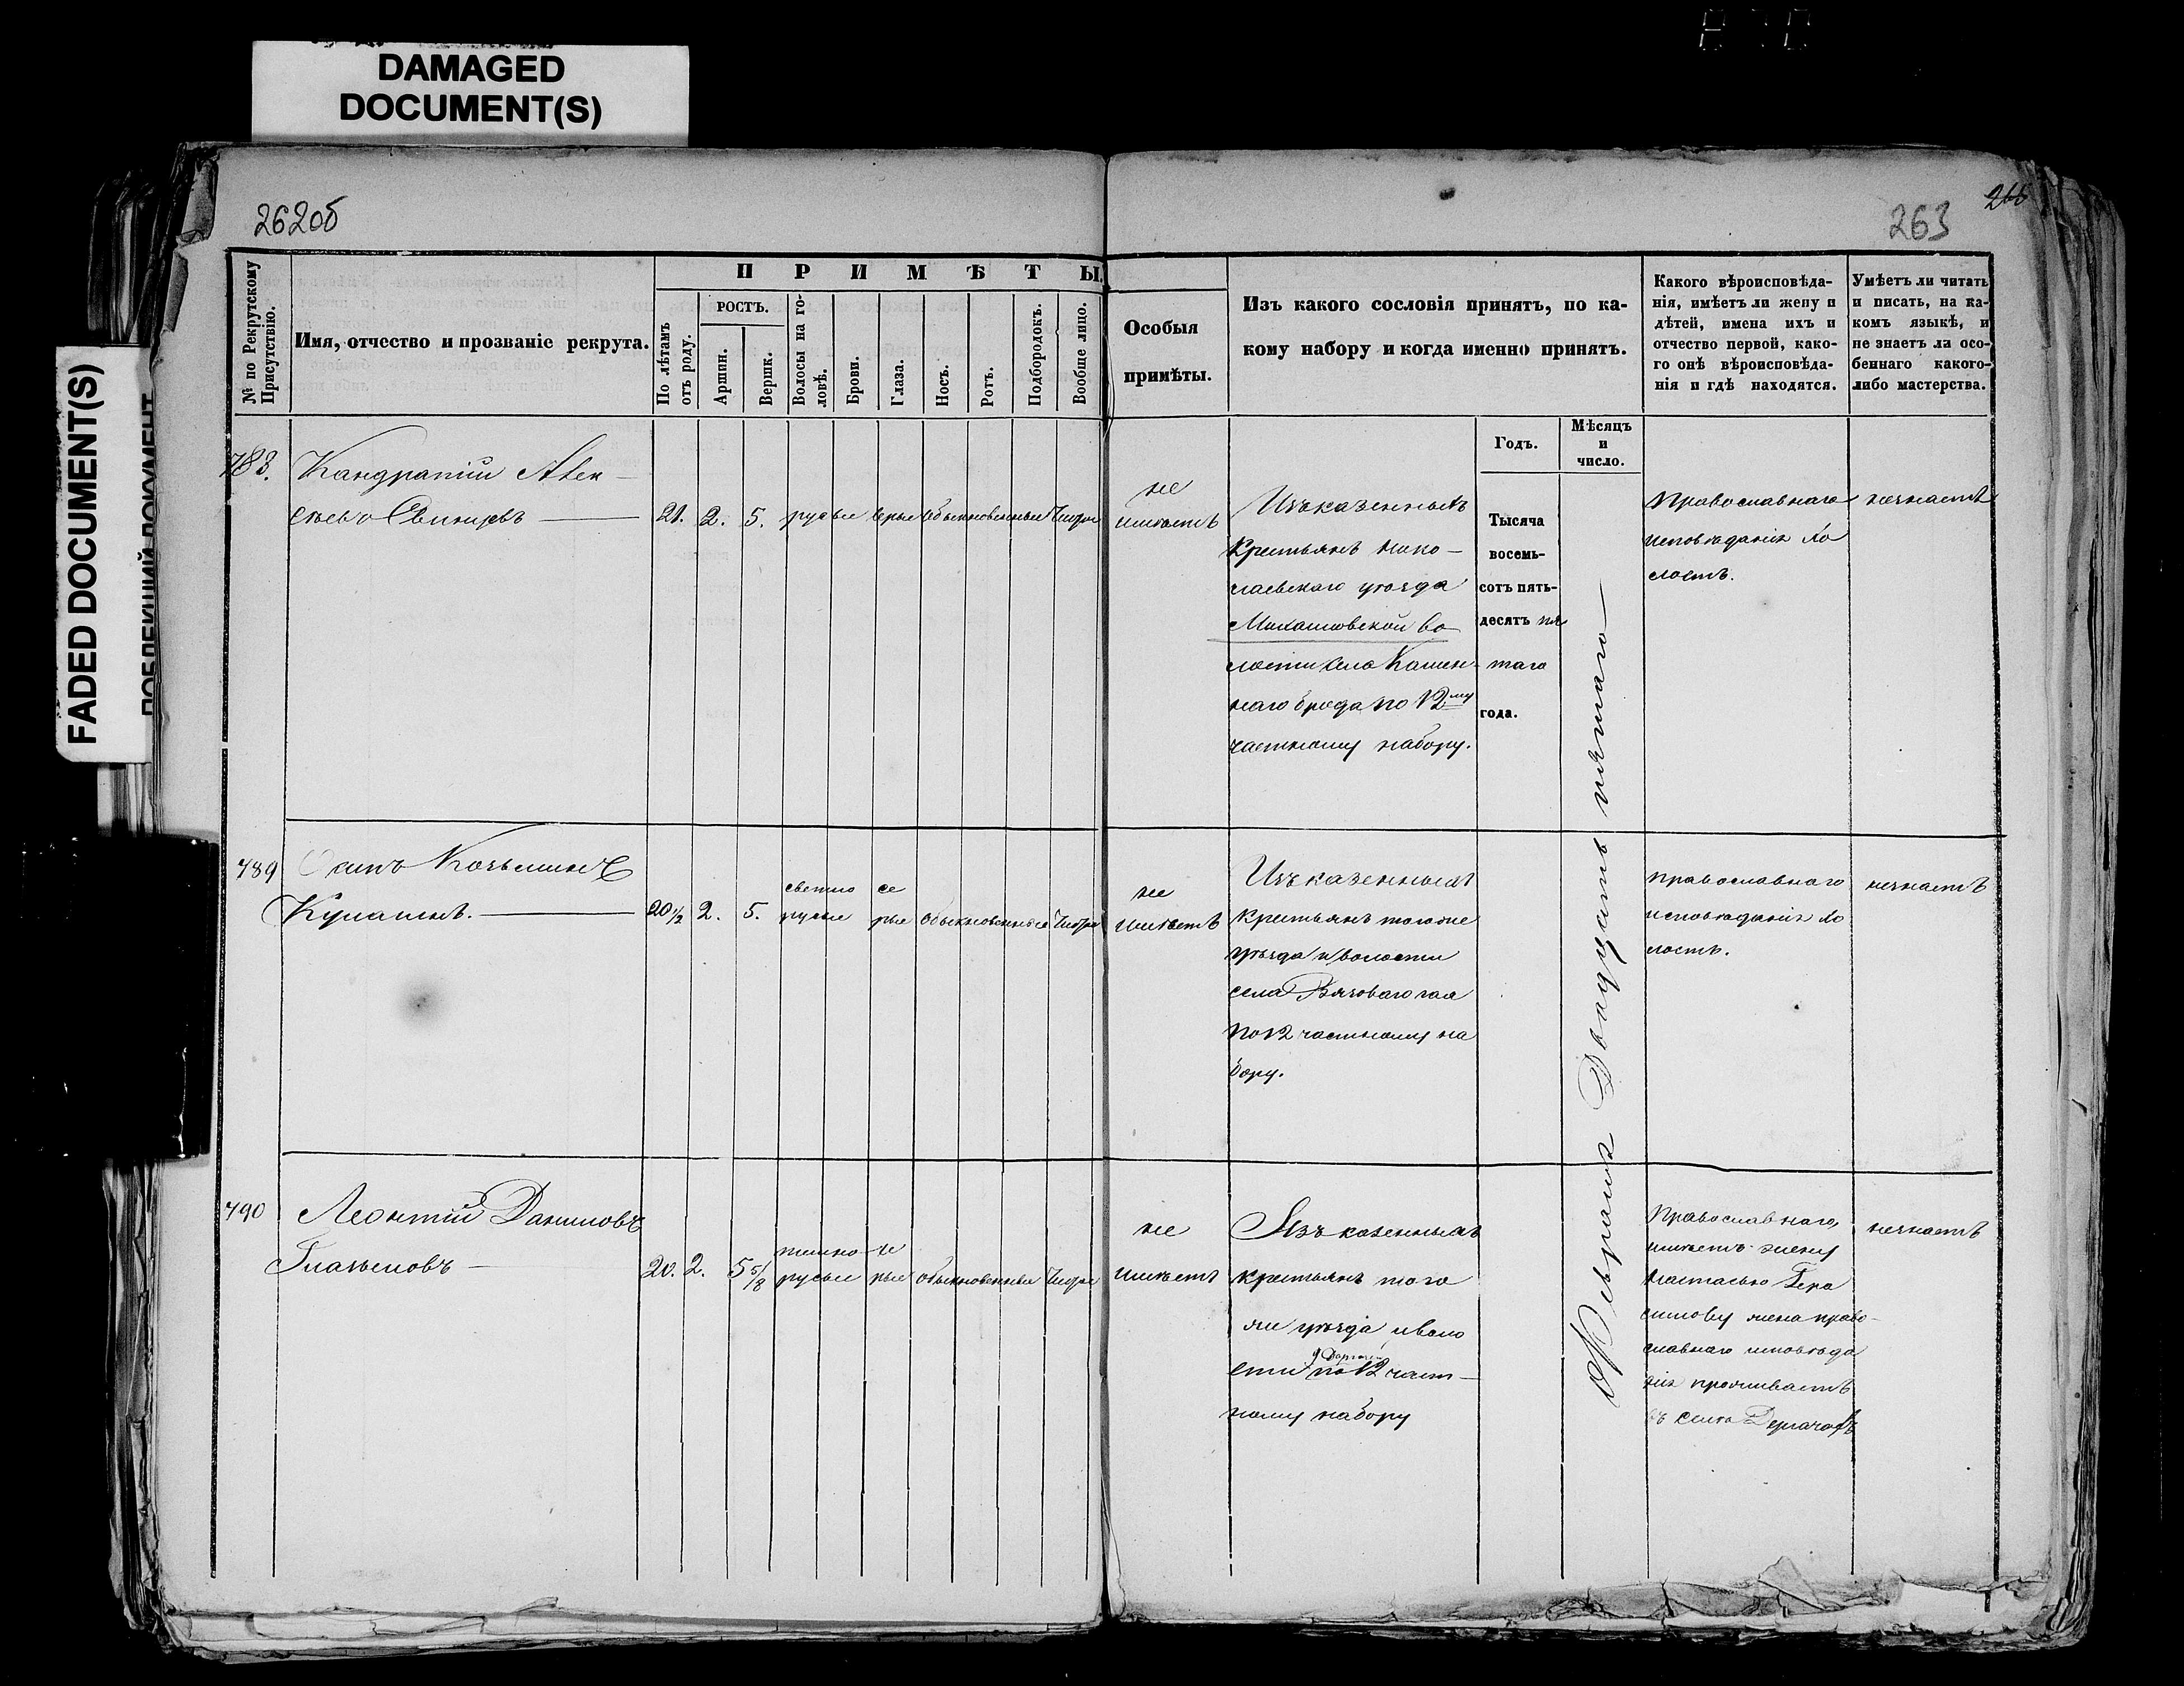 DAMAGED
DOCUMENT(S)
FADED DOCUMENT(S)
262об
263
№ по Рекрутскому
Присутствію.
Имя, отчество и прозваніе рекрута.
ПРИМѢТЫ
По лѣтамъ
отъ роду.
РОСТЪ.
Аршин.
Вершк.
Волосы на го-
ловѣ.
Брови.
Глаза.
Носъ.
Ротъ.
Подбородокъ.
Вообще лицо.
Особыя
примѣты.
Изъ какого сословія принятъ, по ка-
кому набору и когда именно принятъ.
Какого вѣроисповѣда-
нія, имѣетъ ли жену и
дѣтей, имена ихъ и
отчество первой, како-
го онѣ вѣроисповѣда-
нія и гдѣ находятся.
Умѣетъ ли читать
и писать, на ка-
комъ языкѣ, и
не знаетъ ли осо-
беннаго какого-
либо мастерства.
Годъ.
Мѣсяцъ
и
число.
Кандратій Алек-
21. 2. 5. русые серые обыкновенные Чистое
не
имѣетъ
Изъ казенныхъ
Крестьянъ Нико-
лаевскаго уѣзда
Михайловской во-
лости села Камен-
наго брода по 12му
частному набору.
Тысяча
восемь-
сотъ пять-
десятъ пя
таго
года.
Февраля Двадцать пятаго
Православнаго
исповѣданія хо
лостъ.
незнаетъ
789
Осипъ Козьминъ
Кулагинъ.
20 1/2 2. 5. светло русые се рые обыкновенные Чистое
не
имѣетъ
Изъ казенныхъ
Крестьянъ тогоже
уѣзда и волости
села Вязоваго гая
по 12 частному на
бору.
православнаго
исповѣданія хо
лостъ.
незнаетъ
790
Леонтій Даниловъ
20. 2. 5 5/8 темно русые се рые обыкновенные Чистое
не
имѣетъ
Изъ казенныхъ
крестьянъ того
же уѣзда и воло
сти по 12 част-
ному набору
Православнаго,
имѣетъ жену
Настасью Гера
симову жена право-
славнаго исповѣда
нія проживаетъ
въ селѣ Дергачахъ
незнаетъ